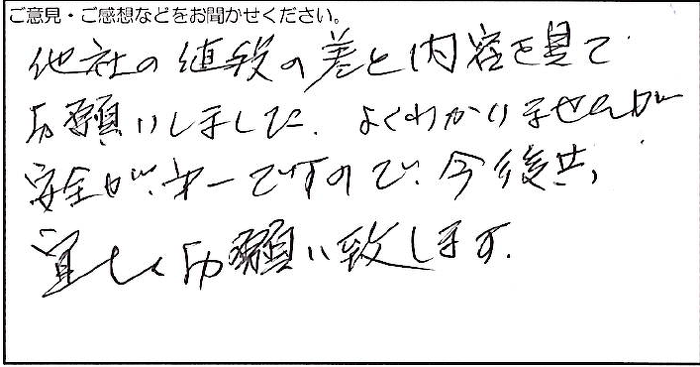 ご意見・ご感想などをお聞かせください。
他社の値段の差と内容を見て
お願いしました。よくわかりませんが
安全が、第一ですので、今後共、
宜しくお願い致します。